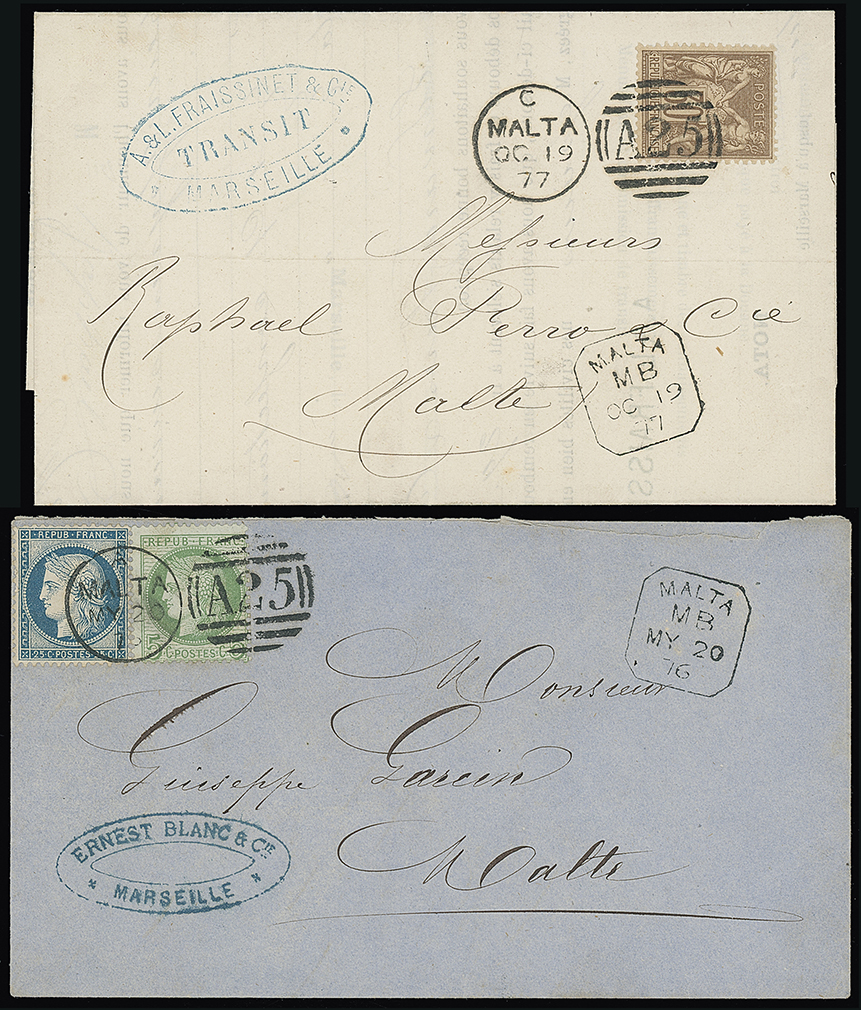 A. & L. FRAISSINET & CIE
TRANSIT
* MARSEILLE *
C
MALTA
OC 19
77
A25
REPUB
POSTES
jusqu'à Marseille
NOTA
Messieurs
Raphael Perro & Cie
Malte
MALTA
MB
OC 19
77
REPUB. FRANC.
25 C POSTES 25 C
REPUB. FRANC
5 C POSTES
MALTA
MY 20
A25
MALTA
MB
MY 20
76
Monsieur
Giuseppe Garcin
Malte
ERNEST BLANC & CIE
* MARSEILLE *